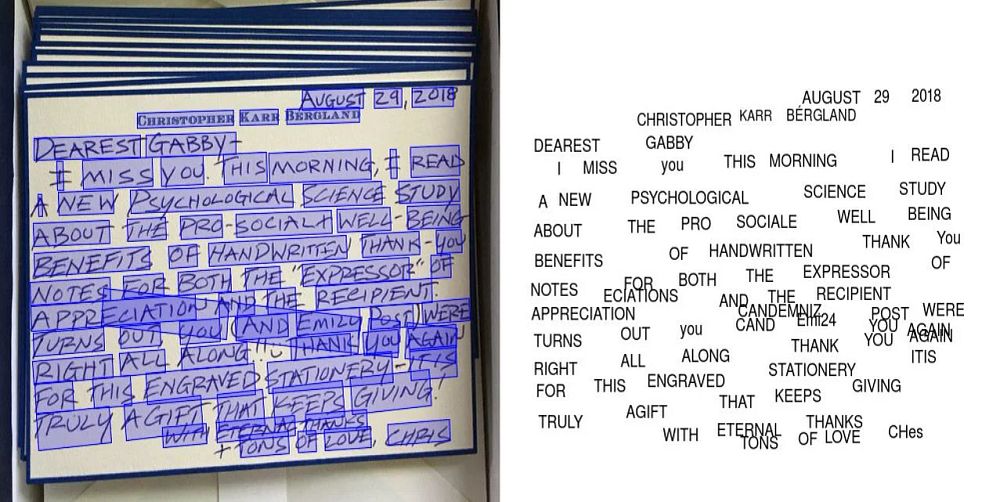 AUGUST 29, 2018
CHRISTOPHER KARR BERGLAND
DEAREST GABBY-
I MISS YOU. THIS MORNING, I READ
A NEW PSYCHOLOGICAL SCIENCE STUDY
ABOUT THE PRO-SOCIAL + WELL-BEING
BENEFITS OF HANDWRITTEN THANK-YOU
NOTES FOR BOTH THE "EXPRESSOR" OF
APPRECIATION AND THE RECIPIENT.
TURNS OUT YOU (AND EMILY POST) WERE
RIGHT ALL ALONG!! THANK YOU AGAIN
FOR THIS ENGRAVED STATIONERY-IT'S
TRULY A GIFT THAT KEEPS GIVING!
WITH ETERNAL THANKS
+ TONS OF LOVE, CHRIS
AUGUST 29 2018
CHRISTOPHER KARR BÉRGLAND
DEAREST GABBY
I MISS you THIS MORNING I READ
A NEW PSYCHOLOGICAL SCIENCE STUDY
ABOUT THE PRO SOCIALE WELL BEING
BENEFITS OF HANDWRITTEN THANK You
NOTES FOR BOTH THE EXPRESSOR OF
APPRECIATION ECIATIONS AND THE RECIPIENT
TURNS OUT you CAND CANDEMNIZ Emi24 POST YOU WERE
RIGHT ALL ALONG THANK YOU AGAIN AGAIN
FOR THIS ENGRAVED STATIONERY ITIS
TRULY AGIFT THAT KEEPS GIVING
WITH ETERNAL THANKS
TONS OF LOVE CHes